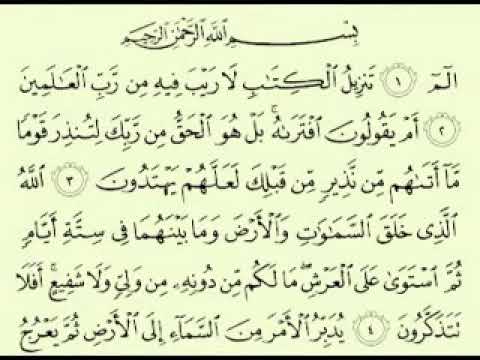 بِسْمِ ٱللَّهِ ٱلرَّحْمَٰنِ ٱلرَّحِيمِ
الٓمٓ ١ تَنزِيلُ ٱلْكِتَٰبِ لَا رَيْبَ فِيهِ مِن رَّبِّ ٱلْعَٰلَمِينَ
٢ أَمْ يَقُولُونَ ٱفْتَرَىٰهُ ۚ بَلْ هُوَ ٱلْحَقُّ مِن رَّبِّكَ لِتُنذِرَ قَوْمًا
مَّآ أَتَىٰهُم مِّن نَّذِيرٍ مِّن قَبْلِكَ لَعَلَّهُمْ يَهْتَدُونَ ٣ ٱللَّهُ
ٱلَّذِى خَلَقَ ٱلسَّمَٰوَٰتِ وَٱلْأَرْضَ وَمَا بَيْنَهُمَا فِى سِتَّةِ أَيَّامٍ
ثُمَّ ٱسْتَوَىٰ عَلَى ٱلْعَرْشِ ۖ مَا لَكُم مِّن دُونِهِۦ مِن وَلِىٍّ وَلَا شَفِيعٍ ۚ أَفَلَا
تَتَذَكَّرُونَ ٤ يُدَبِّرُ ٱلْأَمْرَ مِنَ ٱلسَّمَآءِ إِلَى ٱلْأَرْضِ ثُمَّ يَعْرُجُ